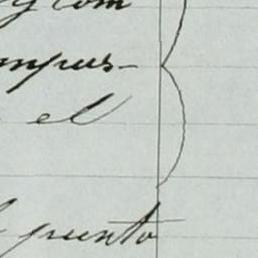 y com
mpues-
el
punto